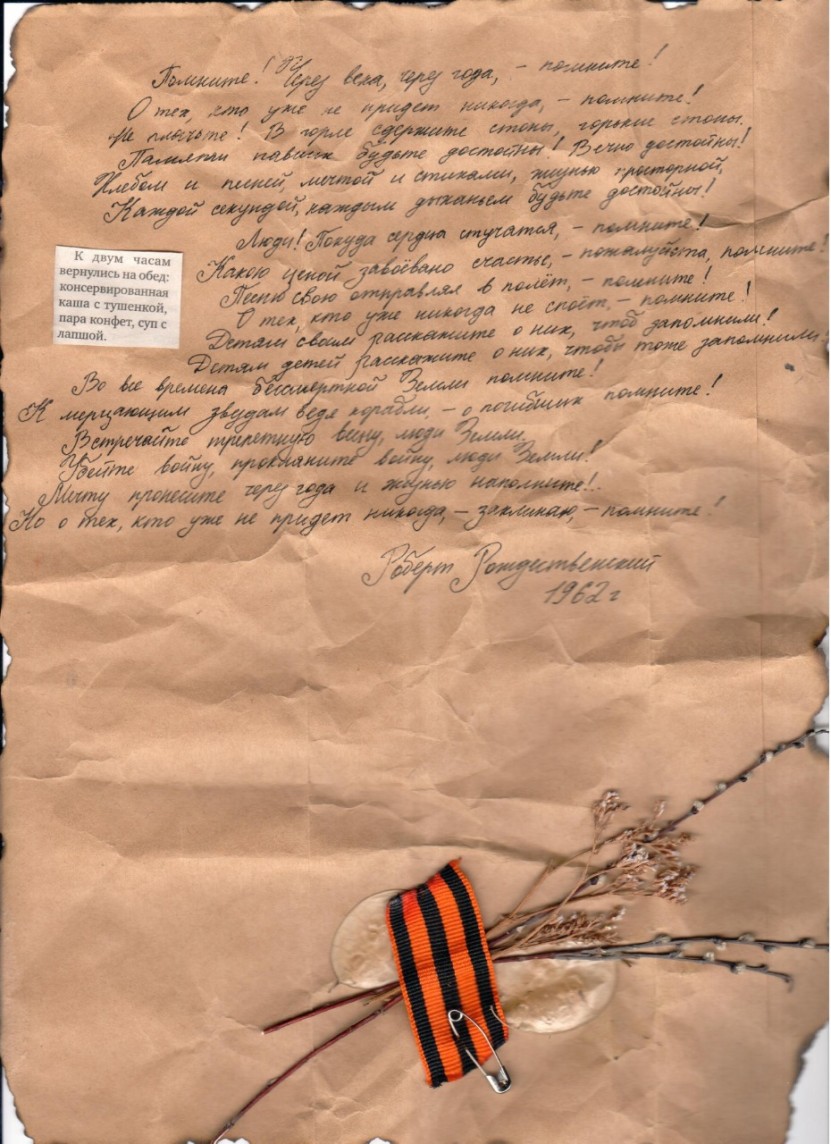 Помните! Через века, через года, – помните!
О тех, кто уже не придет никогда, – помните!
Не плачьте! В горле сдержите стоны, горькие стоны.
Памяти павших будьте достойны! Вечно достойны!
Хлебом и песней, мечтой и стихами, жизнью просторной,
Каждой секундой, каждым дыханьем будьте достойны!
Люди! Покуда сердца стучатся, – помните!
Какою ценой завоёвано счастье, – пожалуйста, помните!
Песню свою отправляя в полёт, – помните!
О тех, кто уже никогда не споёт, – помните!
Детям своим расскажите о них, чтоб запомнили!
Детям детей расскажите о них, чтобы тоже запомнили.
Во все времена бессмертной Земли помните!
К мерцающим звездам ведя корабли, – о погибших помните!
Встречайте трепетную весну, люди Земли.
Убейте войну, прокляните войну, люди Земли!
Мечту пронесите через года и жизнью наполните!..
Но о тех, кто уже не придет никогда, – заклинаю, – помните!
Роберт Рождественский
1962 г
К двум часам
вернулись на обед:
консервированная
каша с тушенкой,
пара конфет, суп с
лапшой.